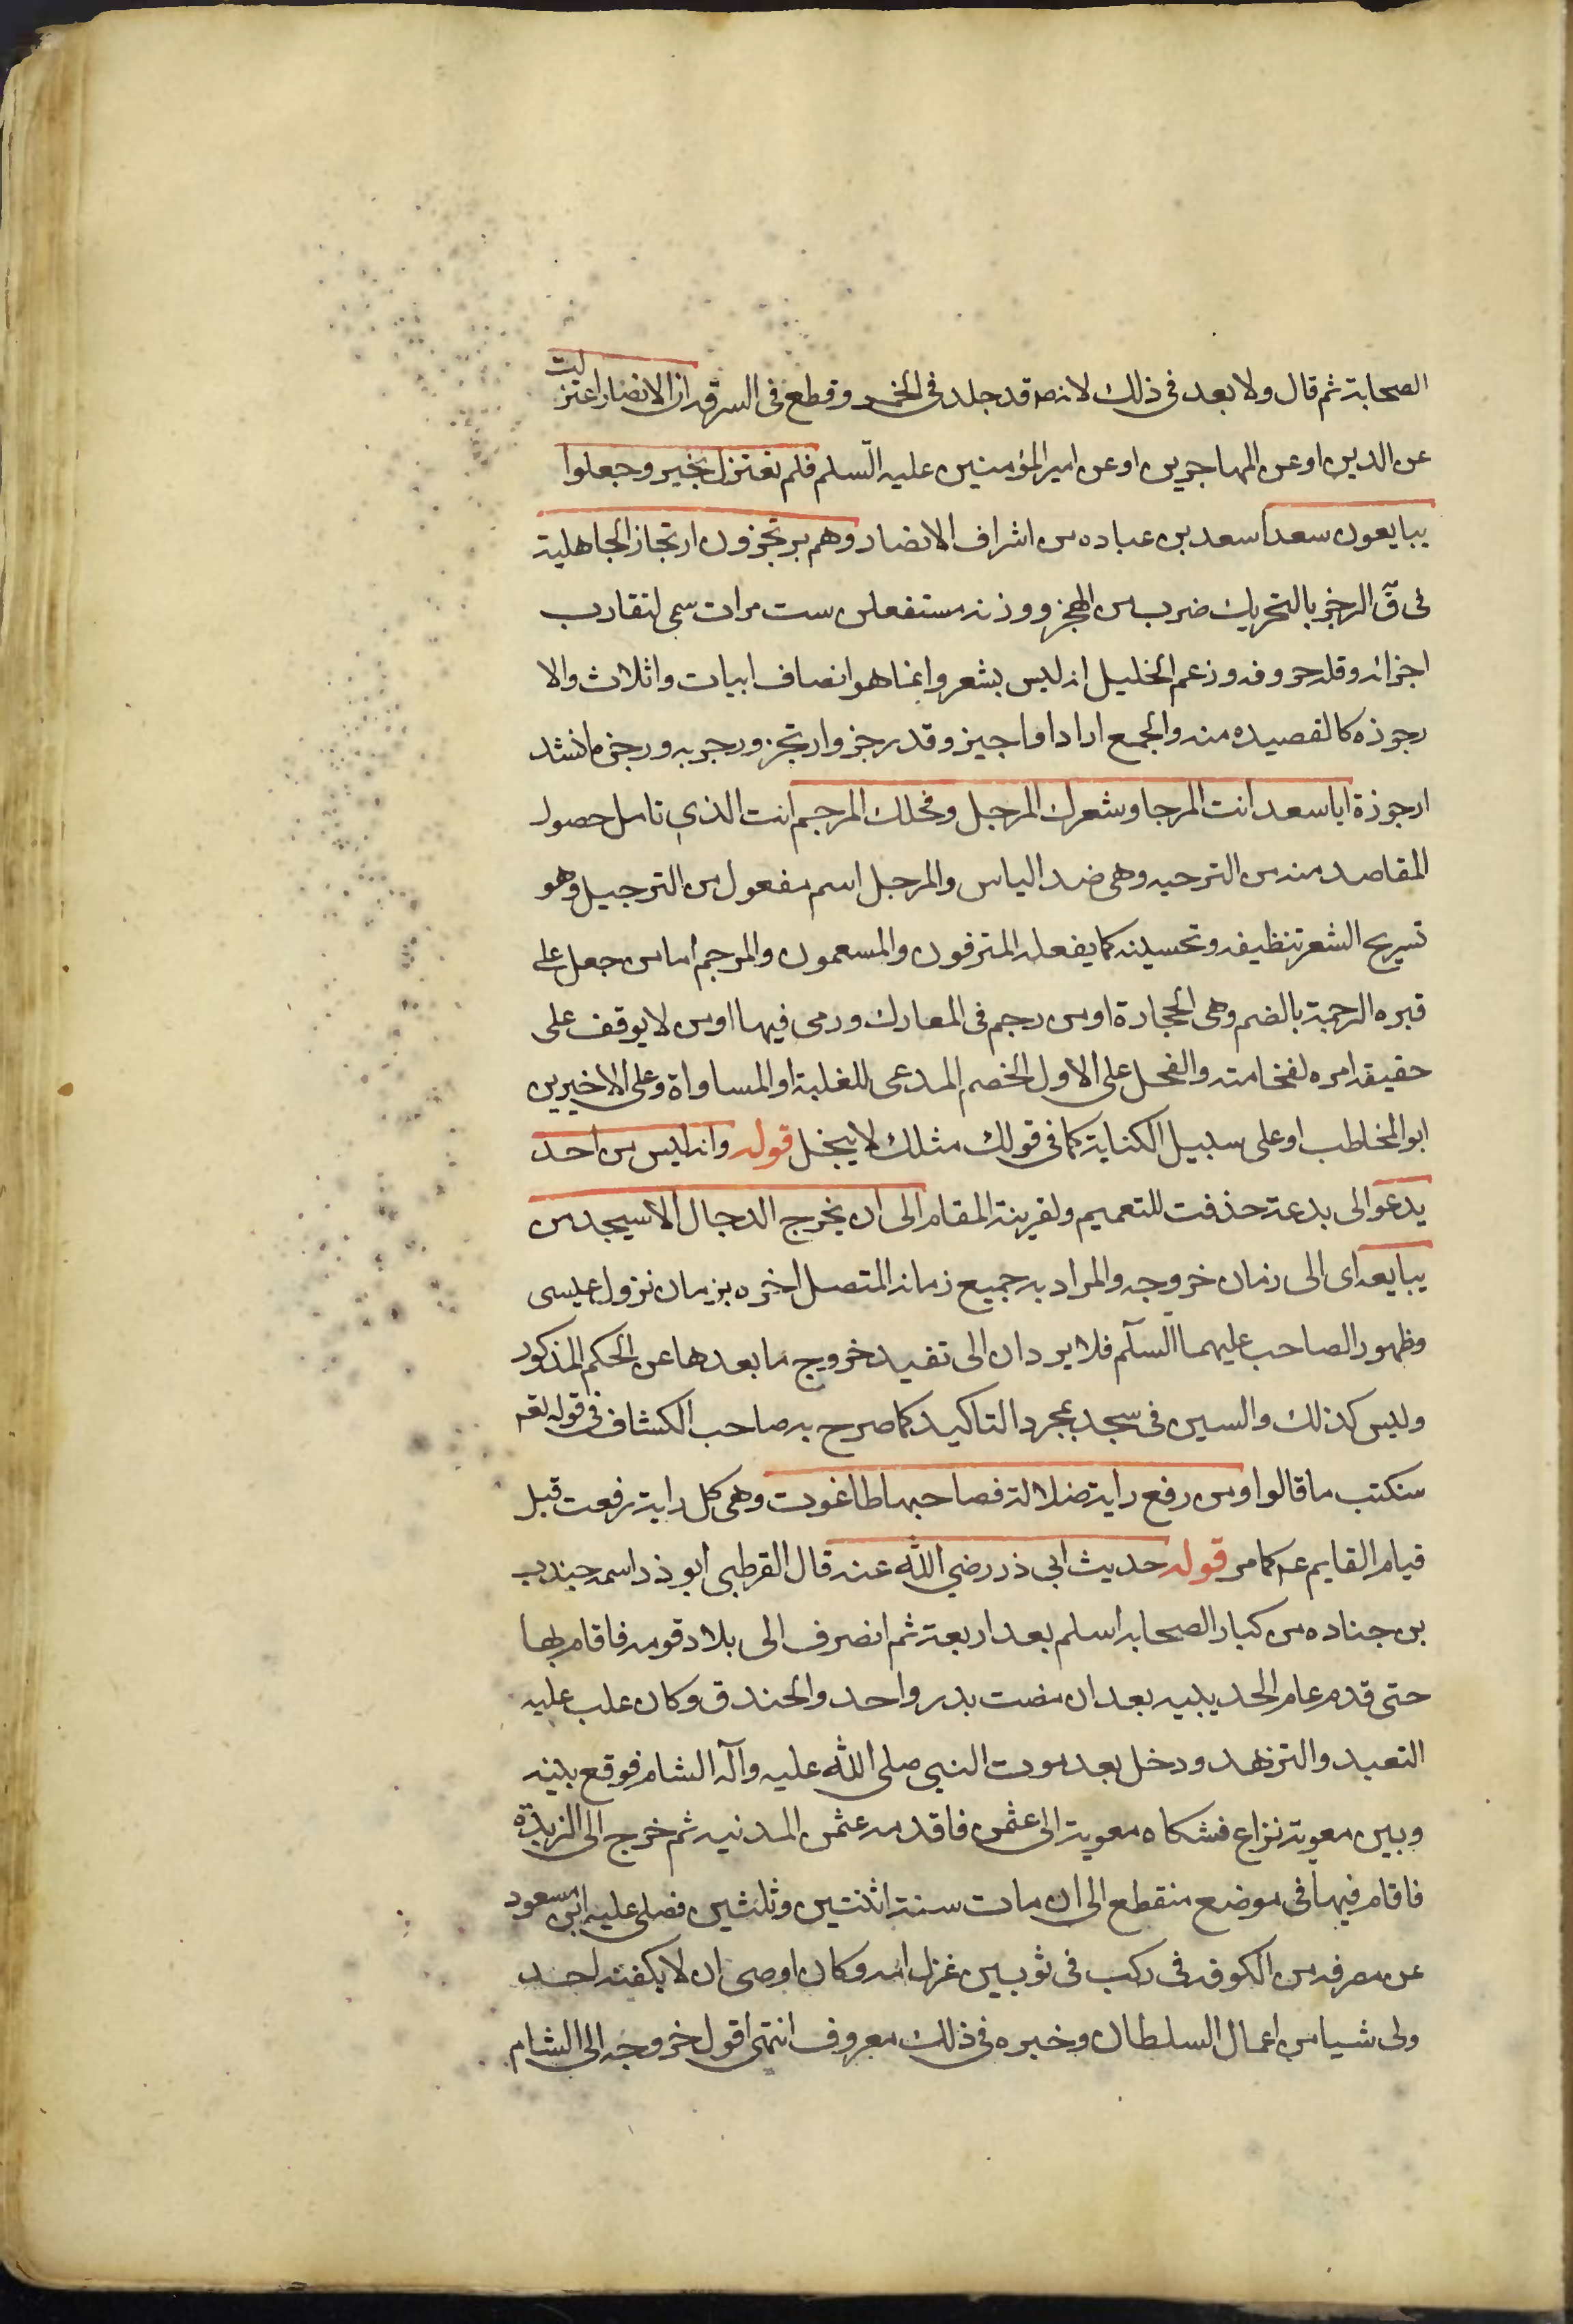 الصحابة ثم قال ولا بعد فى ذلك لانه قد جلد فى الخمر وقطع فى السرقه ان الانصار اعتزلت
عن الدين او عن المهاجرين او عن امير المؤمنين عليه السلم فلم تعتزل بخير وجعلوا
يبايعون سعدا سعد بن عباده من اشراف الانصار وهم يرتجزون ارتجاز الجاهلية
فى ق الرجز بالتحريك ضرب من الهجز ووزنه مستفعلن ست مرات سمى لتقارب
اجزائه وقله حروفه وزعم الخليل انه ليس بشعر وانما هو انصاف ابيات واثلاث والا
رجوزه كالقصيده منه والجمع اراجيز وقد رجز وارتجز ورجز به ورجزه انشد
ارجوزة ايا سعد انت المرجا وشعرك المرجل وفحلك المرجم انت الذى تامل حصول
المقاصد منه من الترجيه وهى ضد الياس والمرجل اسم مفعول من الترجيل وهو
تسريح الشعر تنظيفه وتحسينه كما يفعله المترفون والمسعمون والمرجم اما من جعل على
قبره الرجمة بالضم وهى الحجارة او من رجم فى المعارك ورمى فيها او من لا يوقف على
حقيقه امره لفخامته والفحل على الاول الخصم المدعى للغلبة او المساواة وعلى الاخيرين
ابو المخاطب او على سبيل الكناية كما فى قولك مثلك لا يبخل قوله وانه ليس من احد
يدعو الى بدعة حذفت للتعميم ولقرينة المقام الى ان يخرج الدجال الا سيجد من
يبايعه اى الى زمان خروجه والمراد به جميع زمانه المتصل اخره بزمان نزول عيسى
وظهور الصاحب عليهما السلم فلا يرد ان الى تفيد خروج ما بعدها عن الحكم المذكور
وليس كذلك والسين فى سجد بمجرد التاكيد كما صرح به صاحب الكشاف فى قوله تعه
سنكتب ما قالوا ومن رفع راية ضلالة فصاحبها طاغوت وهى كل راية رفعت قبل
قيام القايم عم كما مر قوله حديث ابى ذر رضي الله عنه قال القرطبى ابو ذر اسمه جندب
بن جناده من كبار الصحابه اسلم بعد اربعة ثم انصرف الى بلاد قومه فاقام بها
حتى قدم عام الحديبيه بعد ان مضت بدر واحد والخندق وكان غلب عليه
التعبد والتزهد ودخل بعد موت النبى صلى الله عليه وآله الشام فوقع بينه
وبين معوية نزاع فشكاه معوية الى عثمن فاقدمه عثمن المدنيه ثم خرج الى الربذة
فاقام فيها فى موضع منقطع الى ان مات سنة اثنتين وثلثين فصلى عليه ابن مسعود
عن مصرفه من الكوفه فى ركب فى ثوبين غزل امه وكان اوصى ان لا يكفنه احد
ولى شيا من اعمال السلطان وخبره فى ذلك معروف انتهى اقول خروجه الى الشام